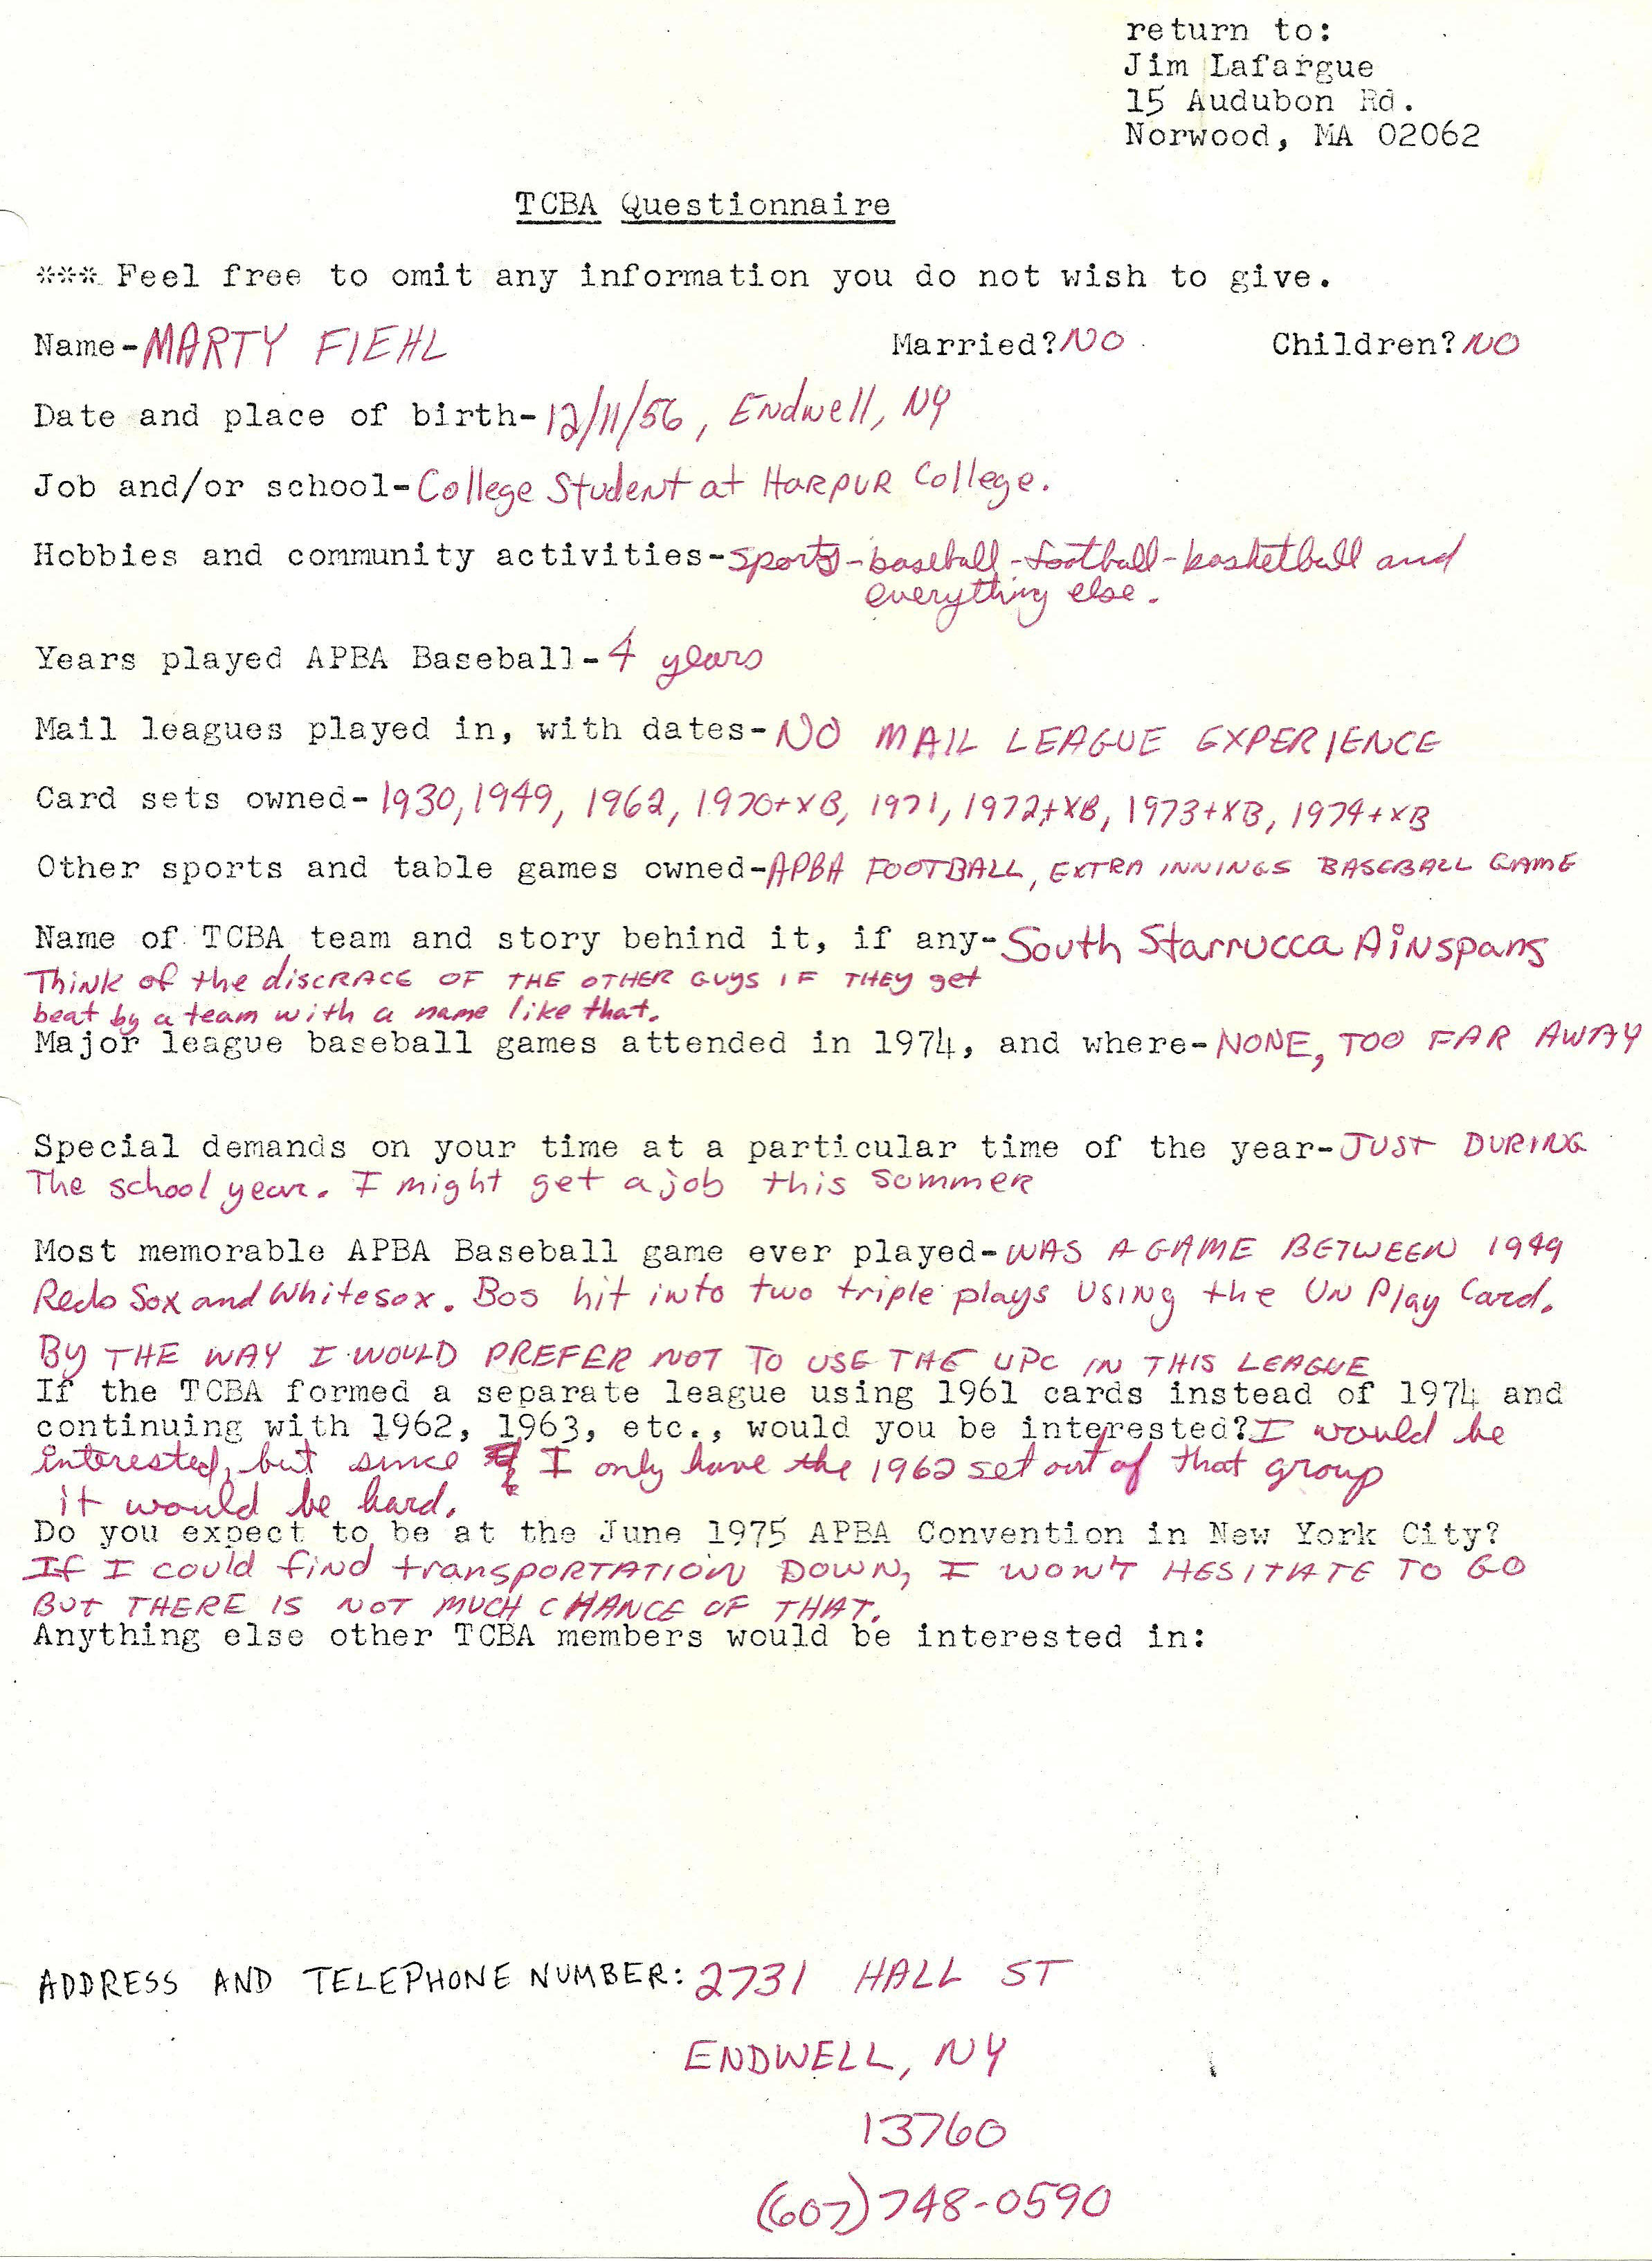 return to:
Jim Lafargue
15 Audubon Rd.
Norwood, MA 02062
TCBA Questionnaire
*** Feel free to omit any information you do not wish to give.
Name-MARTY FIEHL Married?NO Children?NO
Date and place of birth-12/11/56, Endwell, NY
Job and/or school-College Student at HARPUR College.
Hobbies and community activities-sports-baseball-football-basketball and
everything else.
Years played APBA Baseball-4 years
Mail leagues played in, with dates-NO MAIL LEAGUE EXPERIENCE
Card sets owned-1930, 1949, 1962, 1970+XB, 1971, 1972+XB, 1973+XB, 1974+XB
Other sports and table games owned-APBA FOOTBALL, EXTRA INNINGS BASEBALL GAME
Name of TCBA team and story behind it, if any-South Starrucca AiNspans
Think of the disCRACE OF THE OTHER GUYS IF THEY get
beat by a team with a name like that.
Major league baseball games attended in 1974, and where-NONE, TOO FAR AWAY
Special demands on your time at a particular time of the year-JUST DURING
The school year. I might get a job this Sommer
Most memorable APBA Baseball game ever played-WAS A GAME BETWEEN 1949
Reds Sox and Whitesox. Bos hit into two triple plays USING the UN Play Card.
BY THE WAY I WOULD PREFER NOT TO USE THE UPC IN THIS LEAGUE
If the TCBA formed a separate league using 1961 cards instead of 1974 and
continuing with 1962, 1963, etc., would you be interested?I would be
interested, but since I only have the 1962 set out of that group
it would be hard.
Do you expect to be at the June 1975 APBA Convention in New York City?
If I could find transPORTATION DOWN, I WON'T HESITATE TO GO
BUT THERE IS NOT MUCH CHANCE OF THAT.
Anything else other TCBA members would be interested in:
ADDRESS AND TELEPHONE NUMBER: 2731 HALL ST
ENDWELL, NY
13760
(607)748-0590